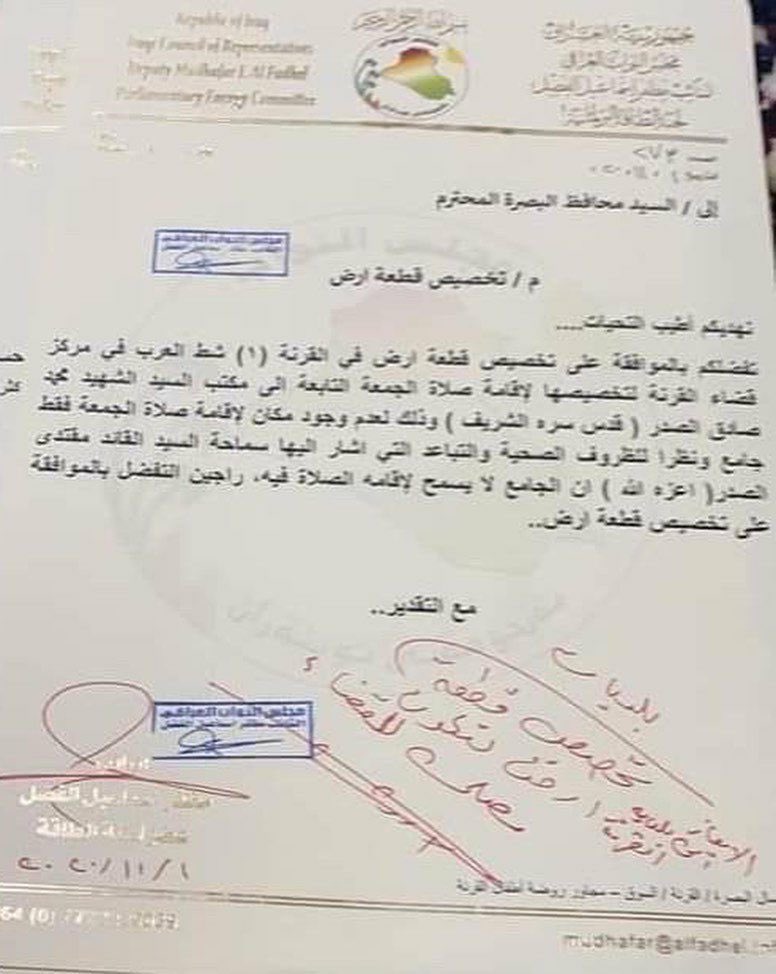 Republic of Iraq
Iraqi Council of Representatives
Deputy Mudhafar I. Al Fadhel
Parliamentary Energy Committee
جمهورية العراق
مجلس النواب العراقي
إلى / السيد محافظ البصرة المحترم
مجلس النواب العراقي
م / تخصيص قطعة ارض
نهديكم أطيب التحيات....
تفضلكم بالموافقة على تخصيص قطعة ارض في القرنة (١) شط العرب في مركز
قضاء القرنة لتخصيصها لإقامة صلاة الجمعة التابعة الى مكتب السيد الشهيد محمد
صادق الصدر ( قدس سره الشريف ) وذلك لعدم وجود مكان لإقامة صلاة الجمعة فقط
جامع ونظرا للظروف الصحية والتباعد التي اشار اليها سماحة السيد القائد مقتدى
الصدر( اعزه الله ) ان الجامع لا يسمح لإقامه الصلاة فيه، راجين التفضل بالموافقة
على تخصيص قطعة ارض..
مع التقدير..
تخصيص قطعة
ارض لتكون
مصلى للقضاء
مجلس النواب العراقي
النائب مظفر اسماعيل الفضل
عضو لجنة الطاقة
٢٠٢٠/١١/١
البصرة / القرنة / السوق – مجاور روضة أطفال القرنة
mudhafar@alfadhel.inf